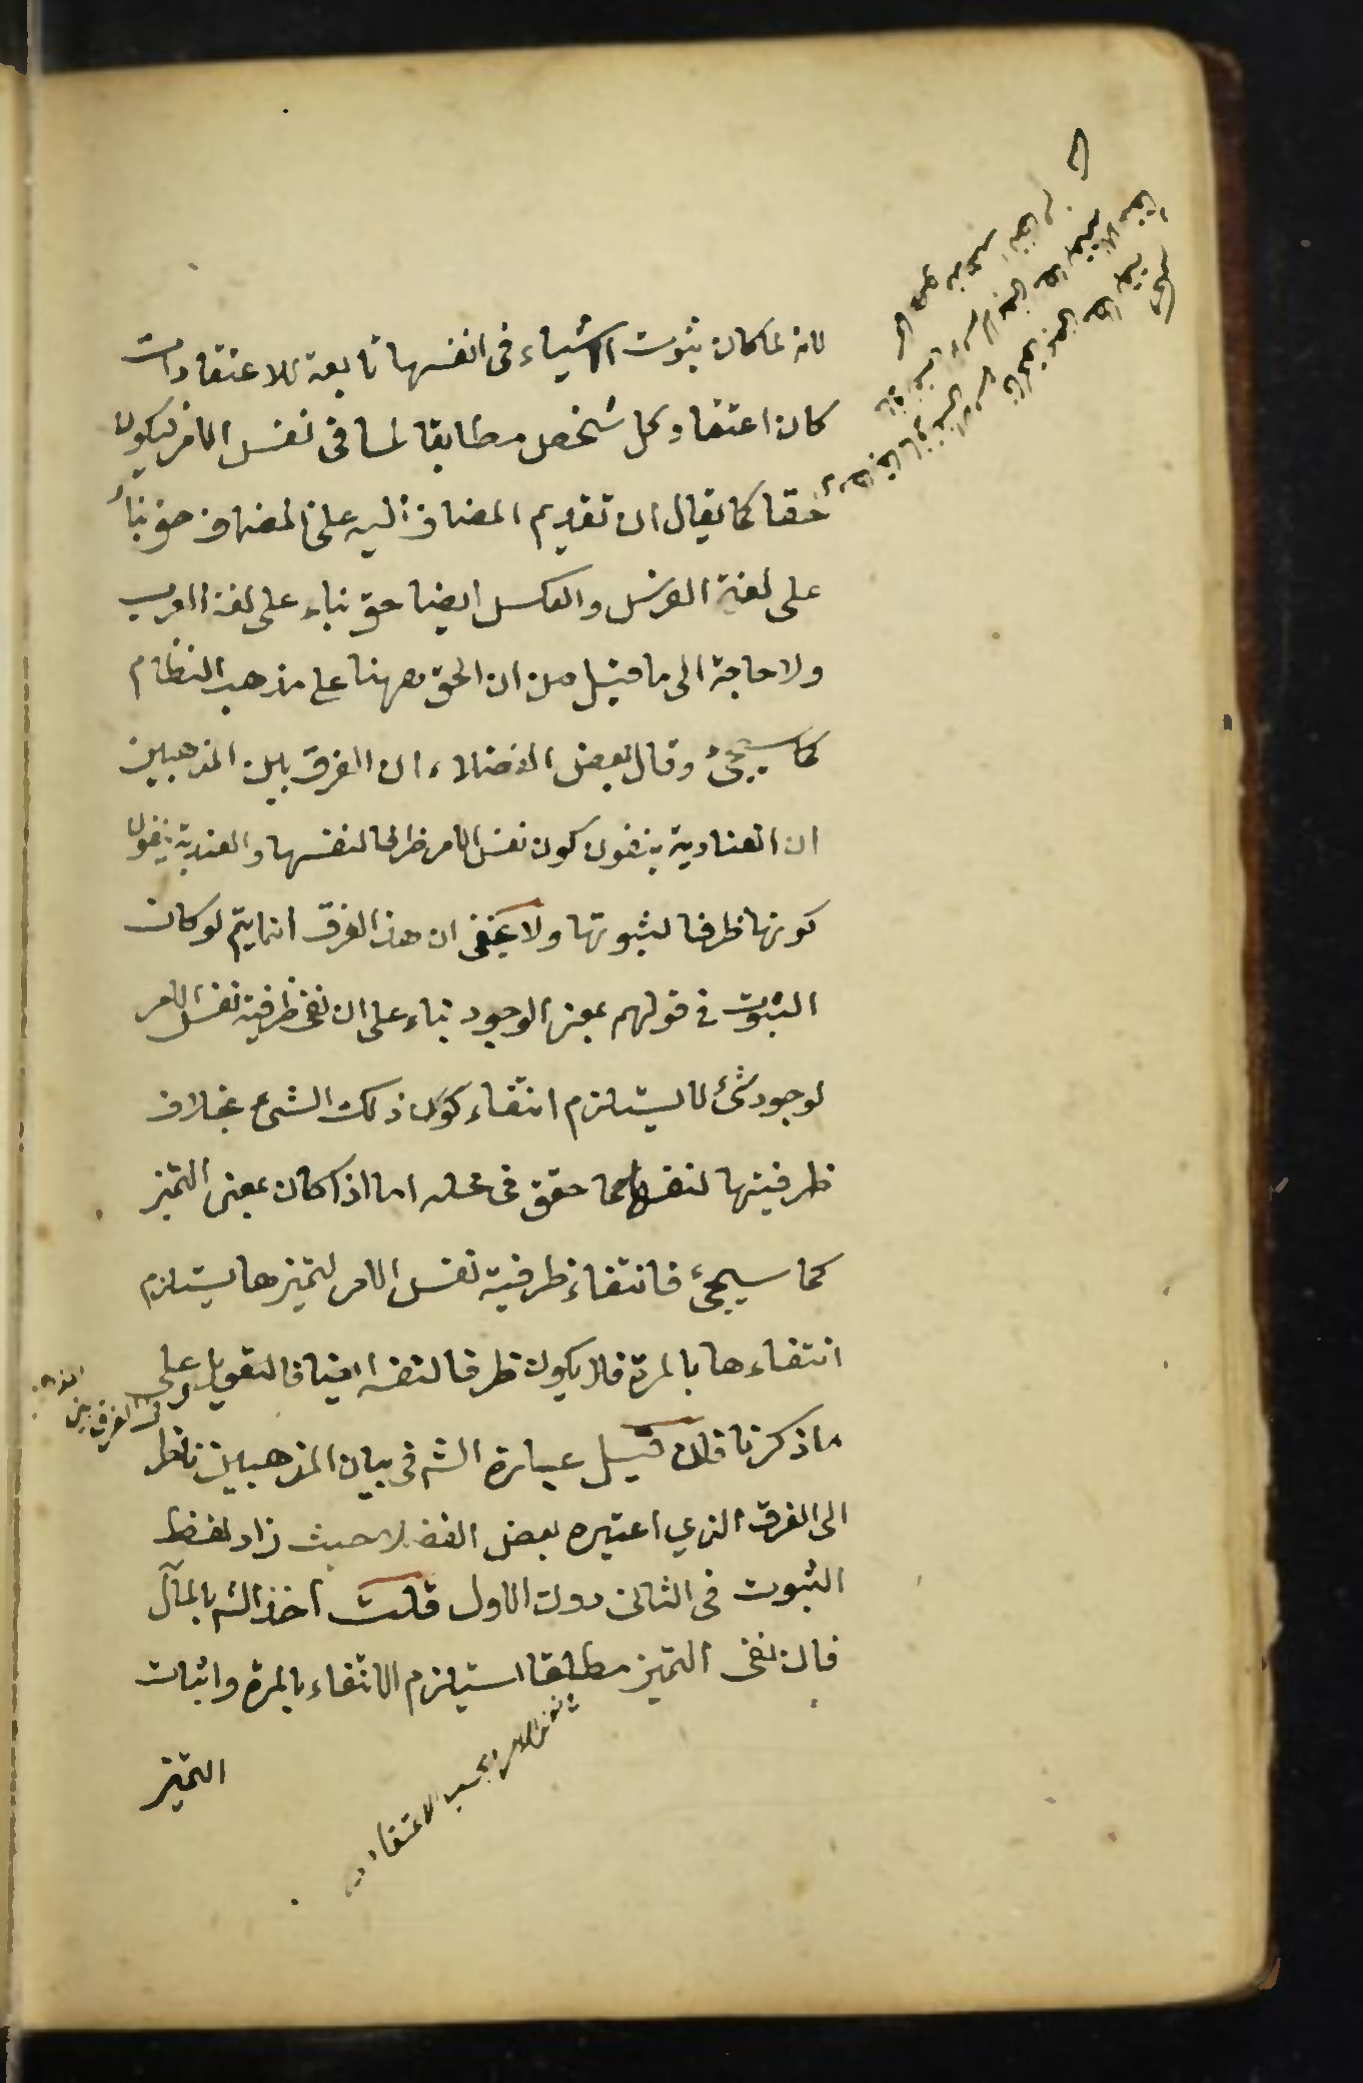 لانه لما كان ثبوت الاشياء فى انفسها تابعة للاعتقادات
كان اعتقاد كل شخص مطابقا لما فى نفس الامر فيكون
حقا كما يقال ان تقديم المضاف اليه على المضاف حق بناءً
على لغة الفرس والعكس ايضا حق بناء على لغة العرب
ولا حاجة الى ما قيل من ان الحق ههنا على مذهب النظام
كما سيجئ وقال بعض الافضلاء ان الفرق بين المذهبين
ان العنادية ينفون كون نفس الامر ظرفا لنفسها والعندية ينفون
كونها ظرفا لثبوتها ولا يخفى ان هذا الفرق انما يتم لو كان
الثبوت فى قولهم بمعنى الوجود بناء على ان نفى ظرفية نفس الامر
لوجود شئ لا يستلزم انتفاء كون ذلك الشئ بخلاف
ظرفيتها لنفسها كما حقق فى محله اما اذا كان بمعنى التميز
كما سيجئ فانتفاء ظرفية نفس الامر لتميزها يستلزم
انتفاءها بالمرة فلا يكون ظرفا لنفسه ايضا فالتعويل على
ما ذكرنا فان قيل عبارة الشه فى بيان المذهبين ناظر
الى الفرق الذي اعتبره بعض الفضلا حيث زاد لفظ
الثبوت فى الثانى دون الاول قلت اخذ الشه بالمآل
فان نفى التميز مطلقا استلزم الانتفاء بالمرة واثبات
التميز
فى الفرق بين
نفس الامر بحسب الاعتقاد